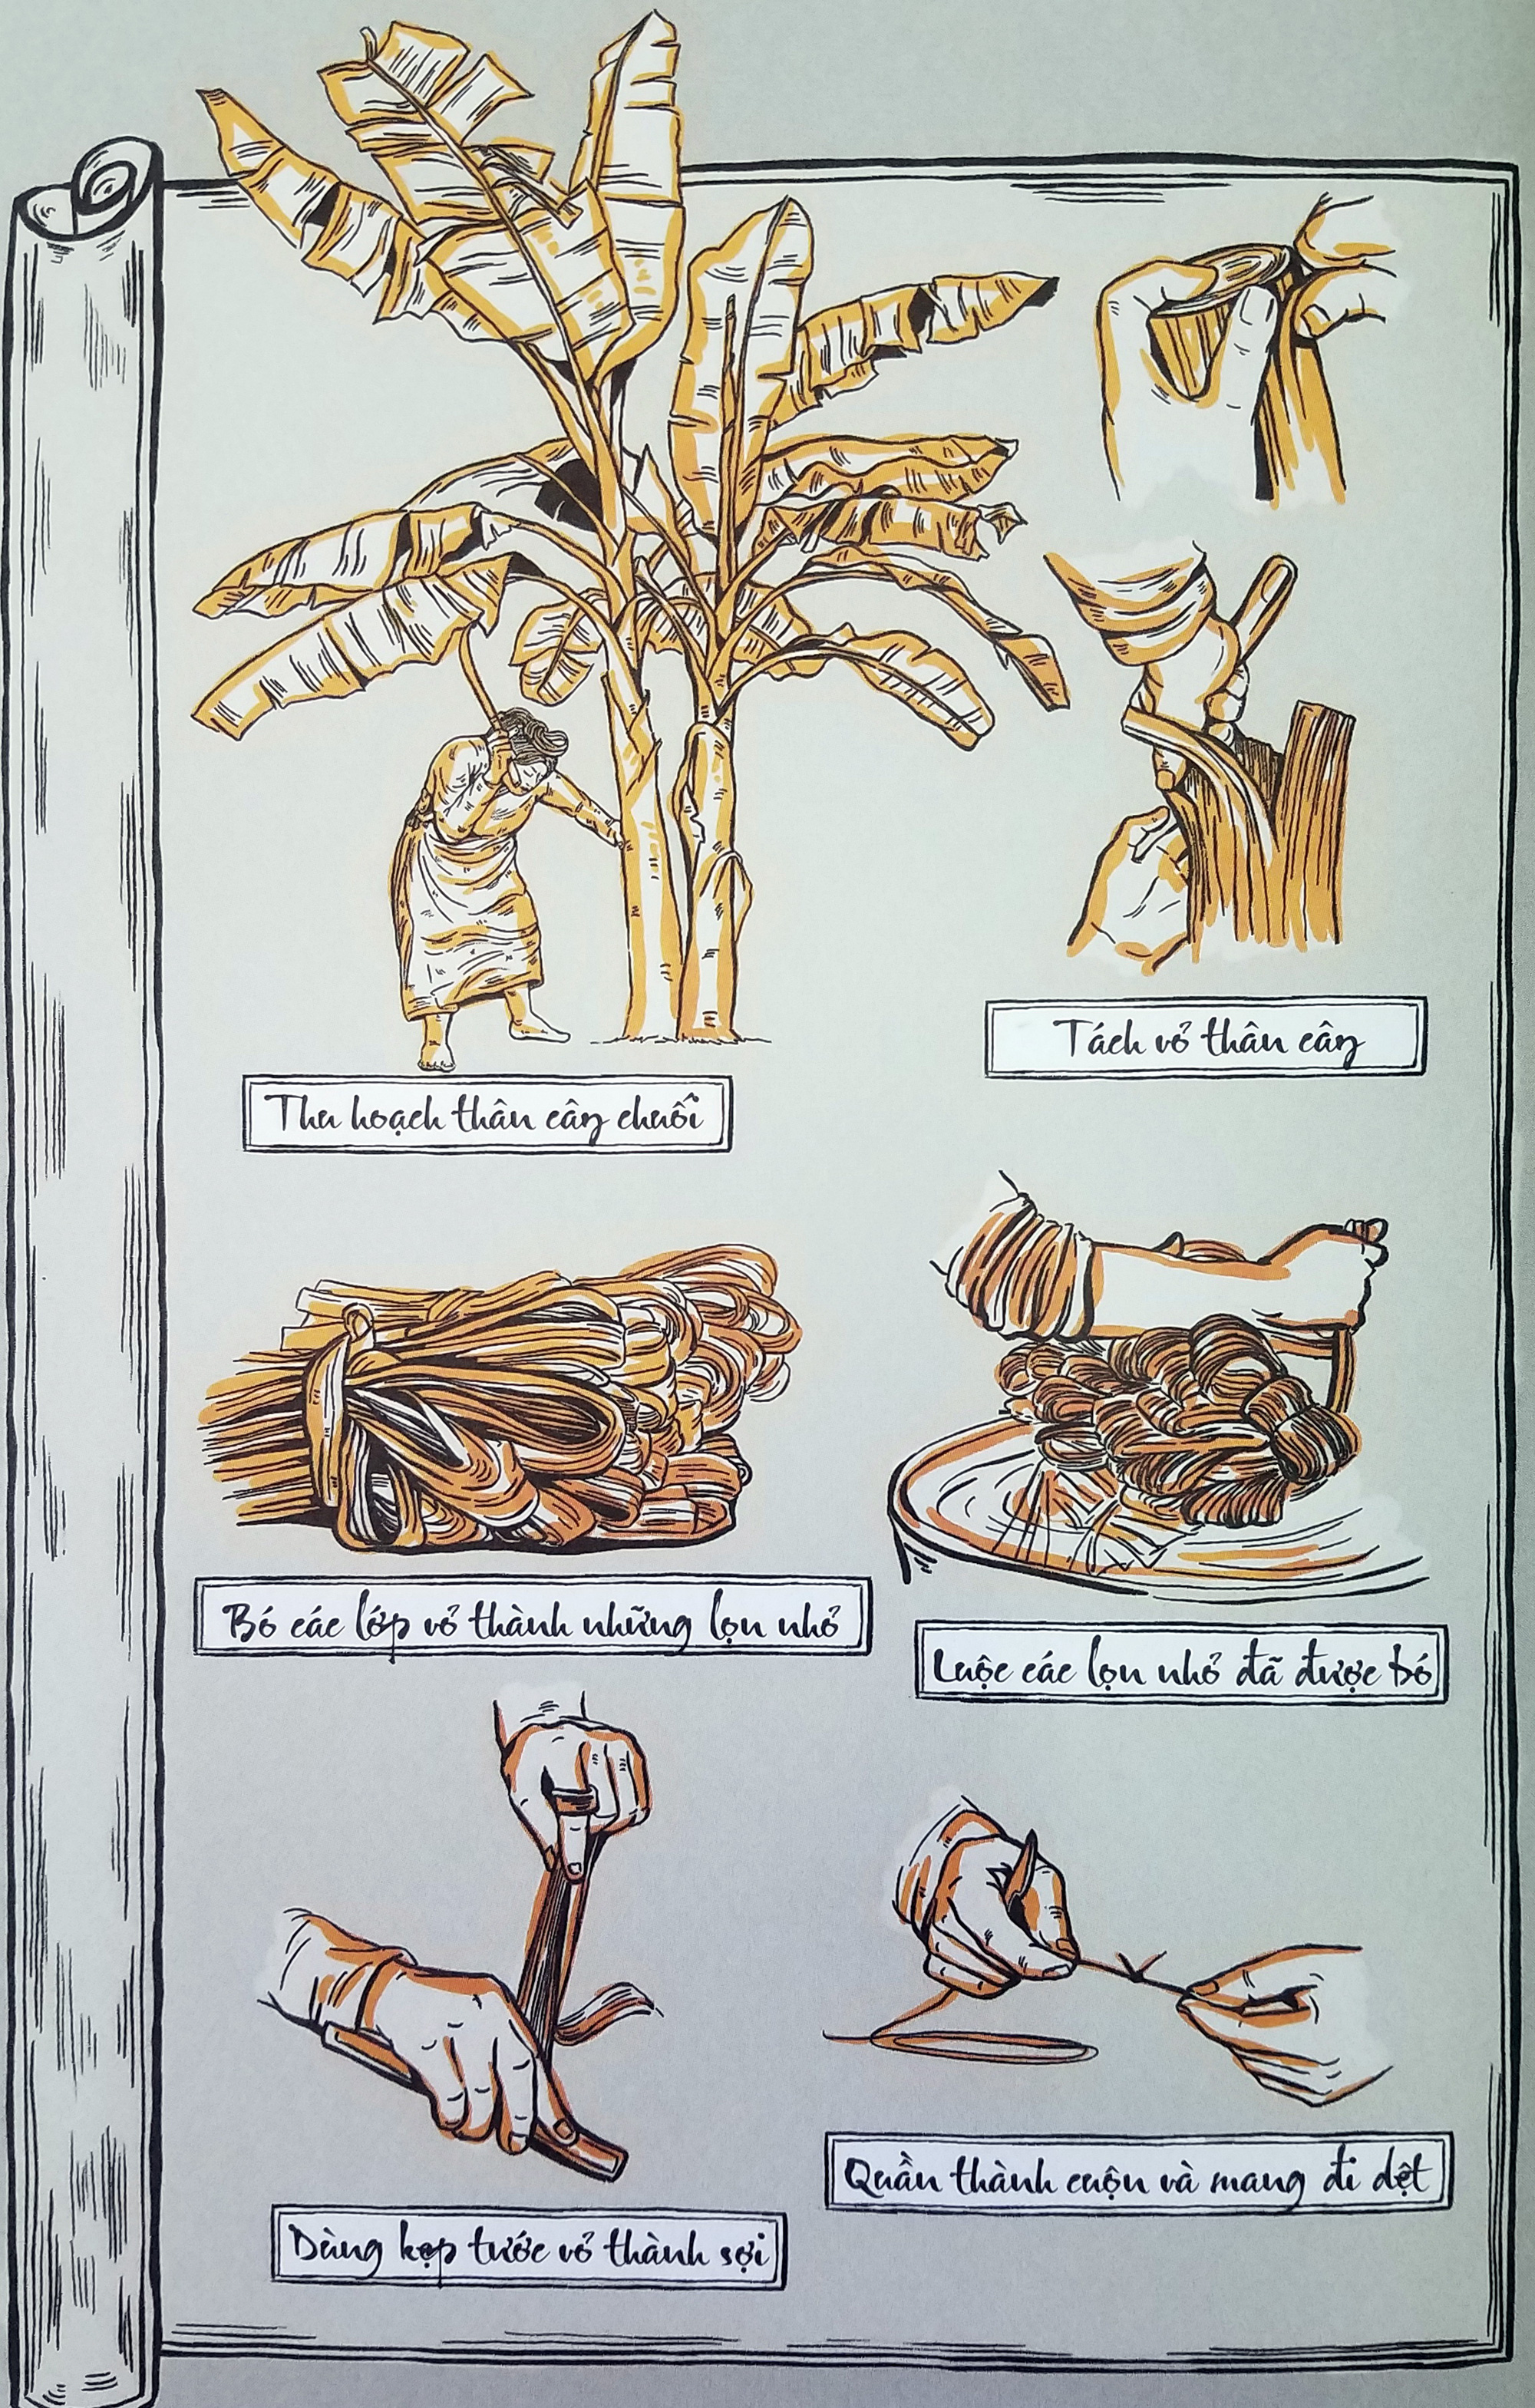 Thu hoạch thân cây chuối
Tách vỏ thân cây
Bó các lớp vỏ thành những lọn nhỏ
Luộc các lọn nhỏ đã được bó
Dùng kẹp tước vỏ thành sợi
Quần thành cuộn và mang đi dệt